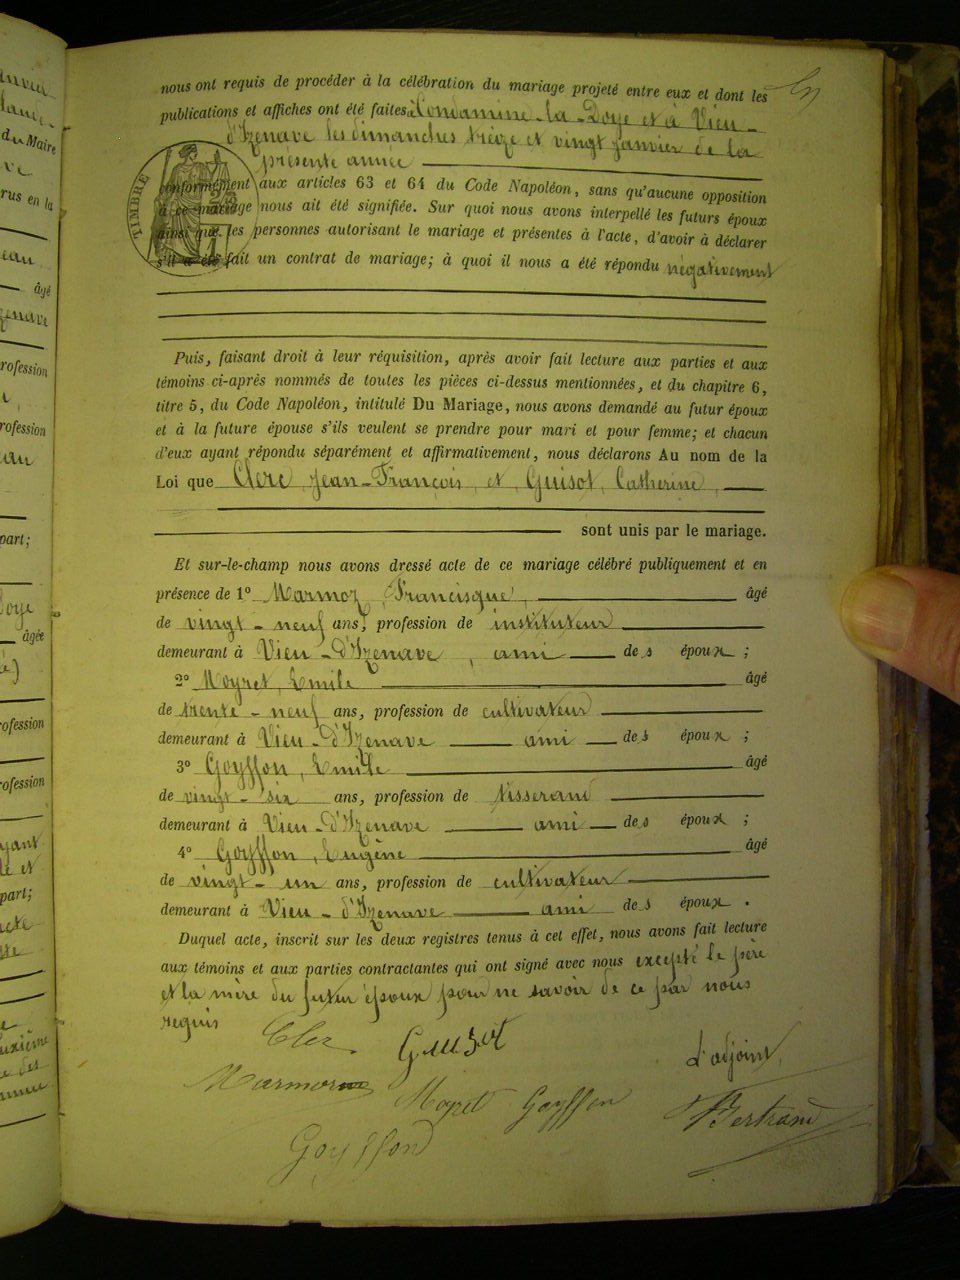 nous ont requis de procéder à la célébration du mariage projeté entre eux et dont les
publications et affiches ont été faites à Condamine-la-Doye et à Vieu-
d'Izenave les dimanches treize et vingt janvier de la
présente année
TIMBRE
conformément aux articles 63 et 64 du Code Napoléon, sans qu'aucune opposition
à ce mariage nous ait été signifiée. Sur quoi nous avons interpellé les futurs époux
ainsi que les personnes autorisant le mariage et présentes à l'acte, d'avoir à déclarer
s'il a été fait un contrat de mariage; à quoi il nous a été répondu négativement
Puis, faisant droit à leur réquisition, après avoir fait lecture aux parties et aux
témoins ci-après nommés de toutes les pièces ci-dessus mentionnées, et du chapitre 6,
titre 5, du Code Napoléon, intitulé Du Mariage, nous avons demandé au futur époux
et à la future épouse s'ils veulent se prendre pour mari et pour femme; et chacun
d'eux ayant répondu séparément et affirmativement, nous déclarons Au nom de la
Loi que Clerc, Jean-François, et, Guisot, Catherine,
sont unis par le mariage.
Et sur-le-champ nous avons dressé acte de ce mariage célébré publiquement et en
présence de 1º Marmoz, Francisque, âgé
de vingt-neuf ans, profession de instituteur
demeurant à Vieu-d'Izenave, ami des époux;
2º Moyret, Emile âgé
de trente-neuf ans, profession de cultivateur
demeurant à Vieu-d'Izenave ami des époux;
3º Goyffon, Emile âgé
de vingt-six ans, profession de tisserand
demeurant à Vieu-d'Izenave ami des époux;
4º Goyffon, Eugène âgé
de vingt-un ans, profession de cultivateur
demeurant à Vieu-d'Izenave ami des époux.
Duquel acte, inscrit sur les deux registres tenus à cet effet, nous avons fait lecture
aux témoins et aux parties contractantes qui ont signé avec nous excepté le père
et la mère du futur époux pour ne savoir de ce par nous
requis
Clerc
Guisot
L'adjoint,
Marmoz
Moyret
Goyffon
Bertrand
Goyffon